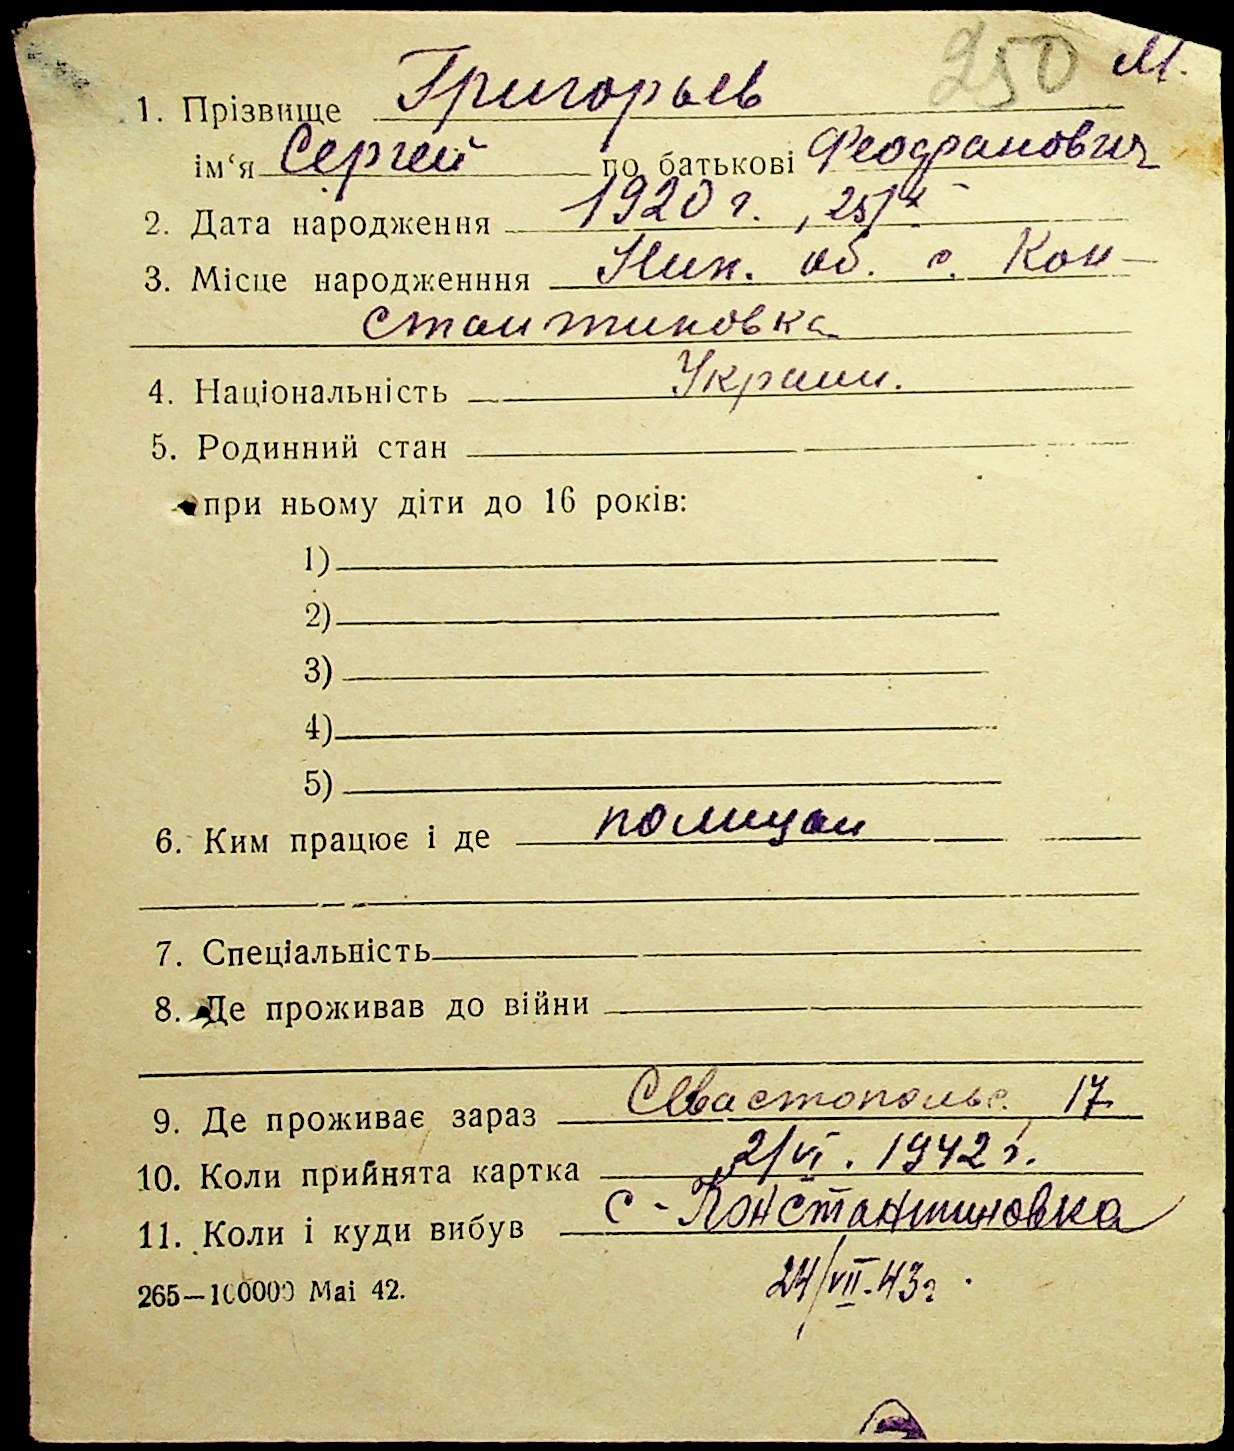 250 М.
1. Прізвище Григорьев
ім'я Сергей по батькові Феофанович
2. Дата народження 1920 г., 25/X
3. Місце народженння Ник. об. с. Кон-
стантиновка
4. Національність Украин.
5. Родинний стан
при ньому діти до 16 років:
1)
2)
3)
4)
5)
6. Ким працює і де полицаи
7. Спеціальність
8. Де проживав до війни
9. Де проживає зараз Севастопольс. 17
10. Коли прийнята картка 2/VI. 1942 г.
11. Коли і куди вибув с-Константиновка
265—100000 Mai 42. 24/VII-43г.